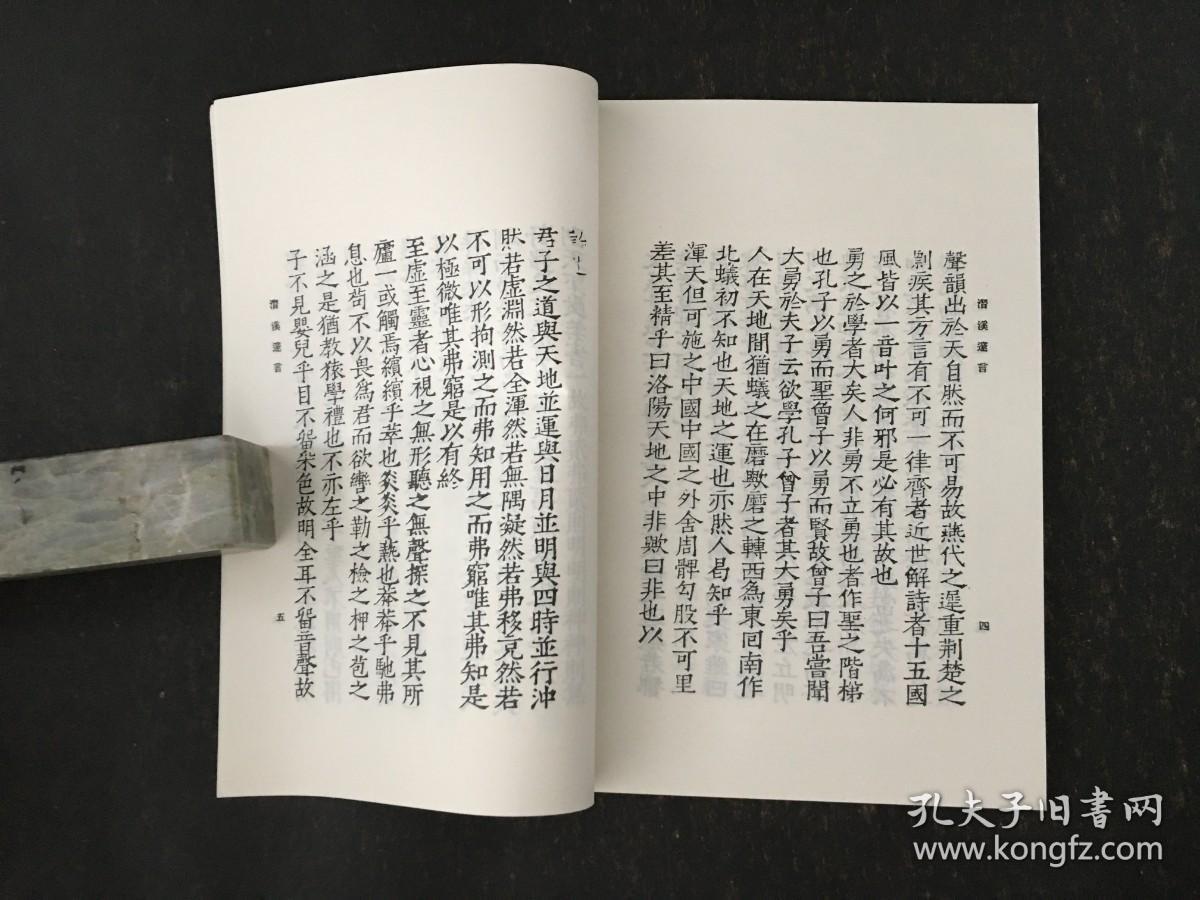 潛溪邃言
聲韻出於天自然而不可易故燕代之遲重荊楚之
剽疾其方言有不可一律齊者近世解詩者十五國
風皆以一音叶之何邪是必有其故也
勇之於學者大矣人非勇不立勇也者作聖之階梯
也孔子以勇而聖曾子以勇而賢故曾子曰吾嘗聞
大勇於夫子云欲學孔子曾子者其大勇矣乎
人在天地間猶蟻之在磨歟磨之轉西為東回南作
北蟻初不知也天地之運也亦然人曷知乎
渾天但可施之中國中國之外舍周髀勾股不可里
差其至精乎曰洛陽天地之中非歟曰非也以
四
君子之道與天地並運與日月並明與四時並行沖
然若虛淵然若全渾然若無隅凝然若弗移充然若
不可以形拘測之而弗知用之而弗窮唯其弗知是
以極微唯其弗窮是以有終
至虛至靈者心視之無形聽之無聲探之不見其所
廬一或觸焉繽繽乎萃也炎炎乎爇也莽莽乎馳弗
息也苟不以畏為君而欲轡之勒之檢之柙之苞之
涵之是猶教猿學禮也不亦左乎
子不見嬰兒乎目不留采色故明全耳不留音聲故
潛溪邃言
五
孔夫子旧書网
www.kongfz.com